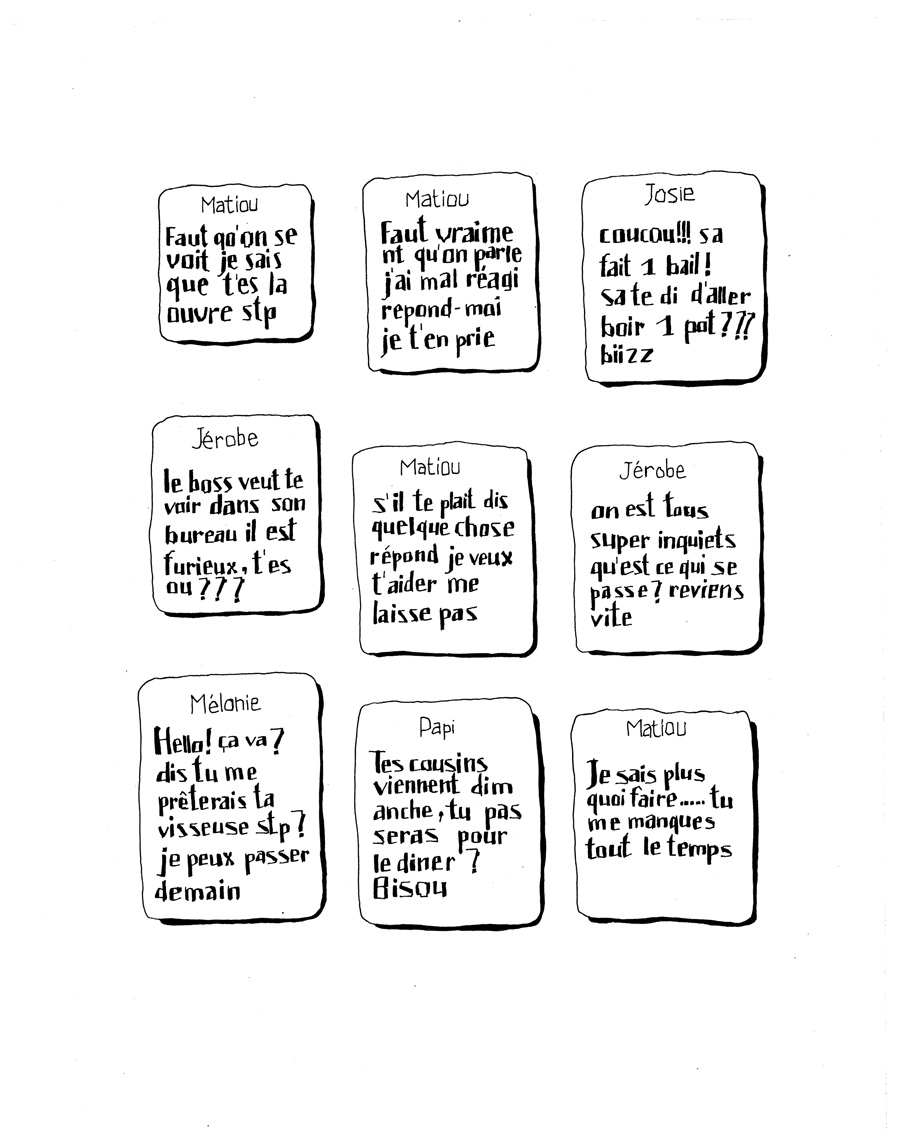 Matiou
Faut qu'on se
voit je sais
que t'es la
ouvre stp
Matiou
Faut vraime
nt qu'on parle
j'ai mal réagi
repond-moi
je t'en prie
Josie
coucou!!! sa
fait 1 bail!
sa te di d'aller
boir 1 pot???
biizz
Jérobe
le boss veut te
voir dans son
bureau il est
furieux, t'es
ou???
Matiou
s'il te plait dis
quelque chose
répond je veux
t'aider me
laisse pas
Jérobe
on est tous
super inquiets
qu'est ce qui se
passe? reviens
vite
Mélanie
Hello! ça va?
dis tu me
prêterais ta
visseuse stp?
je peux passer
demain
Papi
Tes cousins
viennent dim
anche, tu pas
seras pour
le diner ?
Bisou
Matiou
Je sais plus
quoi faire..... tu
me manques
tout le temps